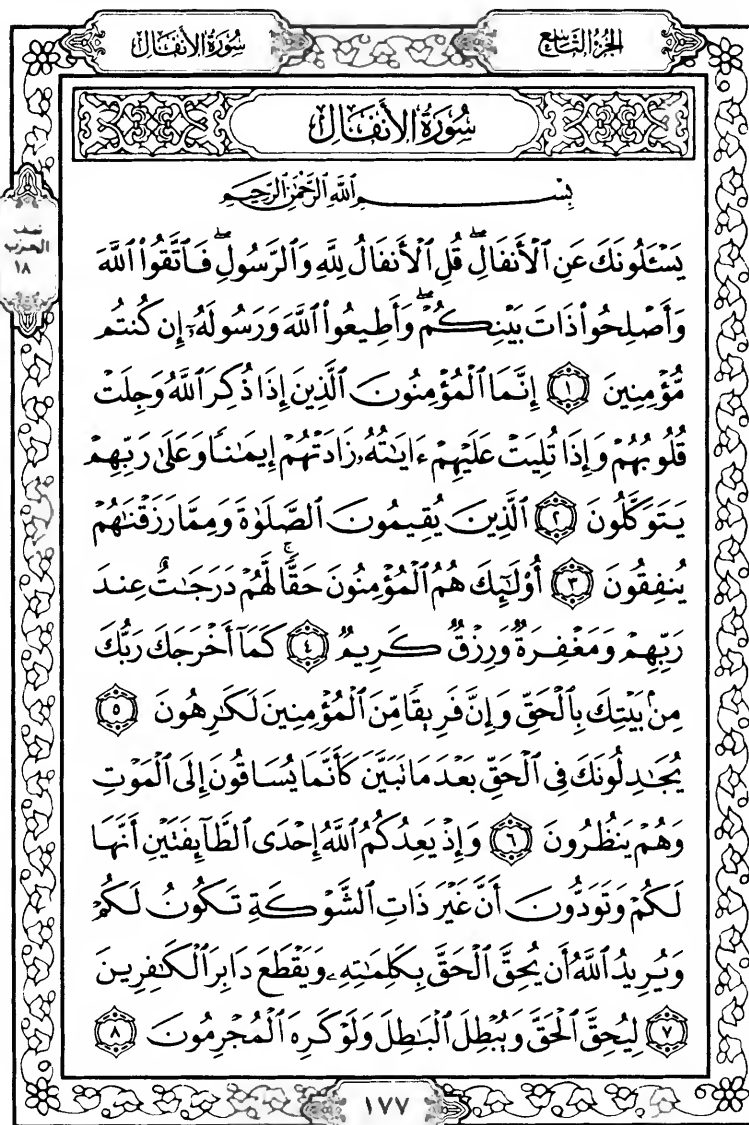 الجزء التاسع
سورة الأنفال
سُورَةُ الأَنفَالِ
بِسْمِ ٱللَّهِ ٱلرَّحْمَٰنِ ٱلرَّحِيمِ
نصف
الحزب
١٨
يَسْـَٔلُونَكَ عَنِ ٱلْأَنفَالِۖ قُلِ ٱلْأَنفَالُ لِلَّهِ وَٱلرَّسُولِۖ فَٱتَّقُوا۟ ٱللَّهَ
وَأَصْلِحُوا۟ ذَاتَ بَيْنِكُمْۖ وَأَطِيعُوا۟ ٱللَّهَ وَرَسُولَهُۥٓ إِن كُنتُم
مُّؤْمِنِينَ ١ إِنَّمَا ٱلْمُؤْمِنُونَ ٱلَّذِينَ إِذَا ذُكِرَ ٱللَّهُ وَجِلَتْ
قُلُوبُهُمْ وَإِذَا تُلِيَتْ عَلَيْهِمْ ءَايَٰتُهُۥ زَادَتْهُمْ إِيمَٰنًا وَعَلَىٰ رَبِّهِمْ
يَتَوَكَّلُونَ ٢ ٱلَّذِينَ يُقِيمُونَ ٱلصَّلَوٰةَ وَمِمَّا رَزَقْنَٰهُمْ
يُنفِقُونَ ٣ أُو۟لَٰٓئِكَ هُمُ ٱلْمُؤْمِنُونَ حَقًّاۚ لَّهُمْ دَرَجَٰتٌ عِندَ
رَبِّهِمْ وَمَغْفِرَةٌ وَرِزْقٌ كَرِيمٌ ٤ كَمَآ أَخْرَجَكَ رَبُّكَ
مِنۢ بَيْتِكَ بِٱلْحَقِّ وَإِنَّ فَرِيقًا مِّنَ ٱلْمُؤْمِنِينَ لَكَٰرِهُونَ ٥
يُجَٰدِلُونَكَ فِى ٱلْحَقِّ بَعْدَ مَا تَبَيَّنَ كَأَنَّمَا يُسَاقُونَ إِلَى ٱلْمَوْتِ
وَهُمْ يَنظُرُونَ ٦ وَإِذْ يَعِدُكُمُ ٱللَّهُ إِحْدَى ٱلطَّآئِفَتَيْنِ أَنَّهَا
لَكُمْ وَتَوَدُّونَ أَنَّ غَيْرَ ذَاتِ ٱلشَّوْكَةِ تَكُونُ لَكُمْ
وَيُرِيدُ ٱللَّهُ أَن يُحِقَّ ٱلْحَقَّ بِكَلِمَٰتِهِۦ وَيَقْطَعَ دَابِرَ ٱلْكَٰفِرِينَ
٧ لِيُحِقَّ ٱلْحَقَّ وَيُبْطِلَ ٱلْبَٰطِلَ وَلَوْ كَرِهَ ٱلْمُجْرِمُونَ ٨
١٧٧